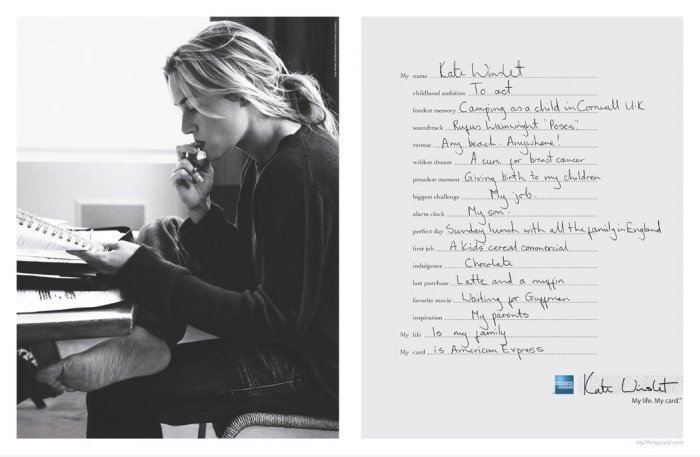 My name Kate Winslet
childhood ambition To act
fondest memory Camping as a child in Cornwall U.K
soundtrack Rufus Wainwright "Poses"
retreat Any beach. Anywhere!
wildest dream A cure for breast cancer
proudest moment Giving birth to my children
biggest challenge My job.
alarm clock My son.
perfect day Sunday lunch with all the family in England
first job A Kids cereal commercial
indulgence Chocolate
last purchase Latte and a muffin
favorite movie Waiting for Guffman
inspiration My parents
My life Is my family
My card is American Express
AMERICAN EXPRESS
Kate Winslet
My life. My card.™
mylifemycard.com